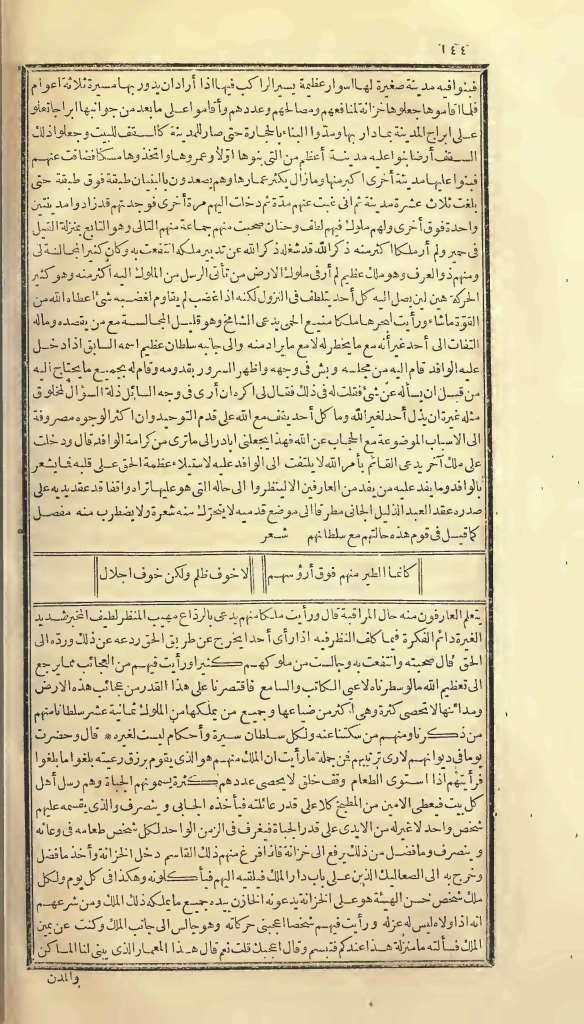 ١٤٤
فبنوا فيه مدينة صغيرة لها اسوار عظيمة يسير الراكب فيها اذا أراد ان يدور بها مسيرة ثلاثة اعوام
فلما أقاموها جعلوها خزانة لمنافعهم ومصالحهم وعددهم وأقاموا على ما بعد من جوانبها ابراجا تعلو
على ابراج المدينة بما دار بها ومدّوا البناء بالحجارة حتى صار للمدينة كالسقف للبيت وجعلوا ذلك
السقف أرضا بنوا عليه مدينة أعظم من التى بنوها اوّلا وعمروها واتخذوها مسكنا فضاقت عنهم
فبنوا عليها مدينة أخرى اكبر منها وما زال يكثر عمارها وهم يصعدون بالبنيان طبقة فوق طبقة حتى
بلغت ثلاث عشرة مدينة ثم انى غبت عنهم مدّة ثم دخلت اليهم مرة أخرى فوجدتهم قد زادوا مدينتين
واحدة فوق أخرى ولهم ملوك فيهم لطف وحنان صحبت منهم جماعة منهم التالى وهو التابع بمنزلة القيل
فى حمير ولم أر ملكا اكثر منه ذكرا لله قد شغله ذكر الله عن تدبير ملكه انتفعت به وكان كثير المجالسة لى
ومنهم ذو العرف وهو ملك عظيم لم أر فى ملوك الارض من تأتى الرسل من الملوك اليه أكثر منه وهو كثير
الحركة هين لين يصل اليه كل أحد يتلطف فى النزول لكنه اذا غضب لم يقاوم لغضبه شئ اعطاه الله من
القوّة ما شاء ورأيت لبحرها ملكا منيع الحمى يدعى الشامخ وهو قليل المجالسة مع من يقصده وماله
التفات الى أحد غير أنه مع ما يخطر له لا مع ما يراد منه والى جانبه سلطان عظيم اسمه السابق اذا دخل
عليه الوافد قام اليه من مجلسه وبش فى وجهه وأظهر السرور بقدومه وقام له بجميع ما يحتاج اليه
من قبل ان يسأله عن شئ فقلت له فى ذلك فقال لى اكره ان أرى فى وجه السائل ذلة السؤال لمخلوق
مثله غيرة ان يذل أحد لغير الله وما كل أحد يقف مع الله على قدم التوحيد وان اكثر الوجوه مصروفة
الى الاسباب الموضوعة مع الحجاب عن الله فهذا يجعلنى ابادر الى ما ترى من كرامة الوافد قال ودخلت
على ملك آخر يدعى القائم بأمر الله لا يلتفت الى الوافد عليه لاستيلاء عظمة الحق على قلبه فما يشعر
بالوافد وما يفد عليه من يفد من العارفين الا لينظروا الى حاله التى هو عليها تراه واقفا قد عقد يديه على
صدره عقد العبد الذليل الجانى مطرقا الى موضع قدميه لا يتحرّك منه شعرة ولا يضطرب منه مفصل
كما قيل فى قوم هذه حالتهم مع سلطانهم شعر
كانما الطير منهم فوق أرؤسهم لا خوف ظلم ولكن خوف اجلال
يتعلم العارفون منه حال المراقبة قال ورأيت ملكا منهم يدعى بالرداع مهيب المنظر لطيف المخبر شديد
الغيرة دائم الفكرة فيما كلف النظر فيه اذا رأى أحدا يخرج عن طريق الحق ردعه عن ذلك وردّه الى
الحق قال صحبته وانتفعت به وجالست من ملوكهم كثيرا ورأيت فيهم من العجائب مما يرجع
الى تعظيم الله ما لو سطرناه لاعيى الكاتب والسامع فاقتصرنا على هذا القدر من عجائب هذه الارض
ومدائنها لا تحصى كثرة وهى اكثر من ضياعها وجميع من يملكها من الملوك ثمانية عشر سلطانا منهم
من ذكرنا ومنهم من سكتنا عنه ولكل سلطان سيرة وأحكام ليست لغيره * قال وحضرت
يوما فى ديوانهم لارى ترتيبهم فمن جملة ما رأيت ان الملك منهم هو الذى يقوم برزق رعيته بلغوا ما بلغوا
فرأيتهم اذا استوى الطعام وقف خلق لا يحصى عددهم كثرة يسمونهم الجباة وهم رسل أهل
كل بيت فيعطى الامين من المطبخ كلا على قدر عائلته فيأخذه الجابى وينصرف والذى يقسمه عليهم
شخص واحد لا غير له من الايدى على قدر الجباة فيغرف فى الزمن الواحد لكل شخص طعامه فى وعائه
وينصرف وما فضل من ذلك يرفع الى خزانة فاذا فرغ منهم ذلك القاسم دخل الخزانة وأخذ ما فضل
وخرج به الى الصعاليك الذين على باب دار الملك فيلقيه اليهم فيأكلونه وهكذا فى كل يوم ولكل
ملك شخص حسن الهيئة هو على الخزانة يدعونه الخازن بيده جميع ما يملكه ذلك الملك ومن شرعهم
انه اذا ولاه ليس له عزله ورأيت فيهم شخصا اعجبنى حركاته وهو جالس الى جانب الملك وكنت عن يمين
الملك فسألته ما منزلة هذا عندكم فتبسم وقال اعجبك قلت نعم قال هذا المعمار الذى يبنى لنا المساكن
والمدن